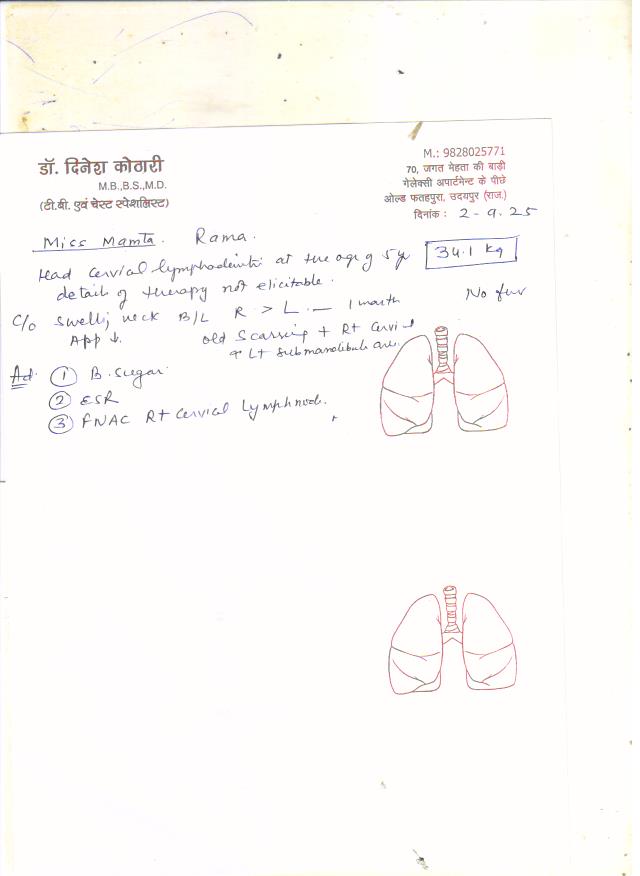 डॉ. दिनेश कोठारी
M.B.,B.S.,M.D.
(टी.बी. एवं चेस्ट स्पेशलिस्ट)
M.: 9828025771
70, जगत मेहता की बाड़ी
गेलेक्सी अपार्टमेन्ट के पीछे
ओल्ड फतहपुरा, उदयपुर (राज.)
दिनांक : 2-9.25
Miss Mamta. Rama.
34.1 kg
Had cervical lymphadenitis at the age of 5 yr
details of therapy not elicitable.
C/o Swelling neck B/L R > L — 1 month No fever
App ↓. old Scarring + Rt Cervical
& Lt submandibular area.
Ad. ① B. Sugar
② ESR
③ FNAC Rt Cervical Lymph node.